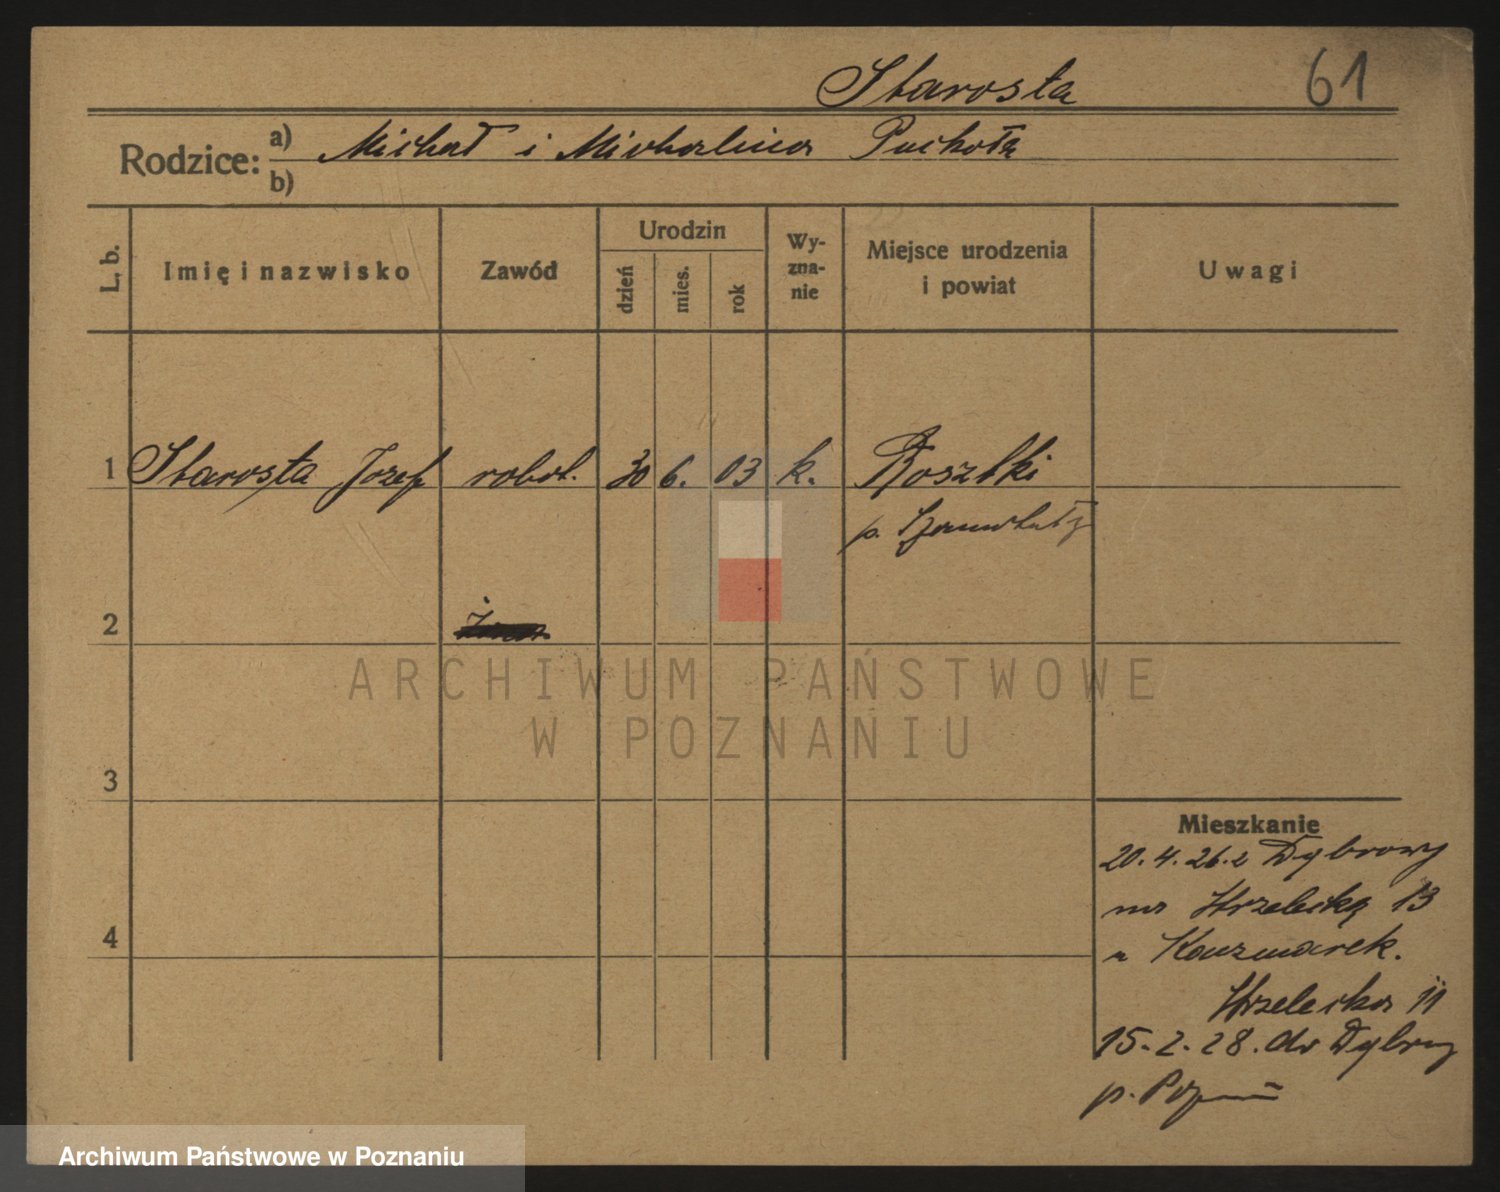 Starosta 61
Rodzice: a) Michał i Michalina Puchała
b)
L. b. Imię i nazwisko Zawód Urodzin dzień mies. rok Wyzna-nie Miejsce urodzenia i powiat Uwagi
1 Starosta Józef robot. 30 6. 03 k. Roszbki
p.
2
ARCHIWUM PAŃSTWOWE
W POZNANIU
3
Mieszkanie
20. 4. 26. z Dąbrowy
na Strzelecką 13
4
u Kaczmarek.
Strzelecka 11
15. 2. 28. do Dąbrowy
p. Poznań
Archiwum Państwowe w Poznaniu